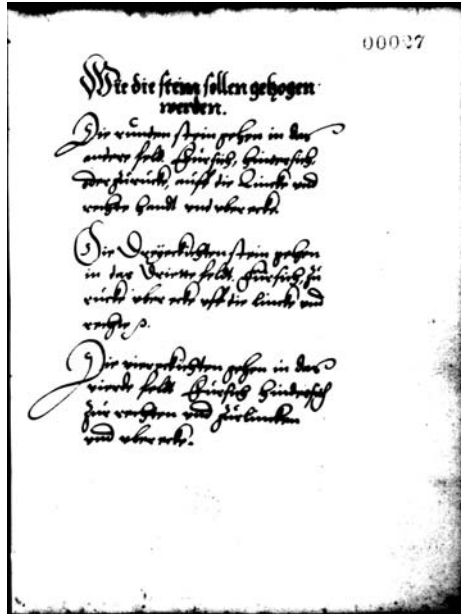 00027
Wie die stein sollen gezogen
werden.
Die runten stein gehen in das
andere feldt, fürsich, hintersich,
oder zurück, auff die Lincke vnd
rechte handt vnd vber ecke.
Die Dreyeckichten stein gehen
in das dritte feldt, fürsich, zu
rücke vber ecke vff die lincke vnd
rechte
Die viereckichten gehen in das
vierde feldt fürsich hindersich
zur rechten vnd zur lincken
vnd vber ecke.